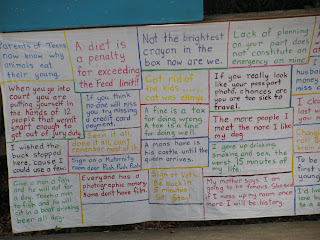 Parents of Teens
now know why
animals eat
their young.
A diet is
a penalty
for exceeding
the feed limit!
Not the brightest
crayon in the
box now are we.
Lack of planning
on your part does
not constitute an
emergency on mine
When you go into
court you are
putting yourself in
the hands of 12
people that weren't
smart enough to
get out of jury duty.
If you think
no one will miss
you try missing
a credit card
payment.
Got rid of
the kids
cat was
If you really
look like your
passport
photo, chances are
you are too sick to
travel.
A fine is a tax
for doing wrong
A tax is a fine
for doing well.
The more people I
meet the more I like
my dog
I wished the
buck stopped
here, cause I
could use a few.
it all
done it all, can't
remember most of it
Sign on a Maternity
room door Push Push Push
A mans home is
his castle until the
queen arrives.
I gave up drinking
smoking and sex, the
worst 15 minutes of
my life.
Give a man a fish
and he will eat for
a day. Teach a man
to fish and he will
sit in a boat drinking
beer all day.
Everyone has a
photographic memory
Some dont have film.
Sign at Vets,
Be back in
5 minutes
Sit Stay!
My mother says I am
going to be famous. She said
if I mess up my room once
more I will be history.